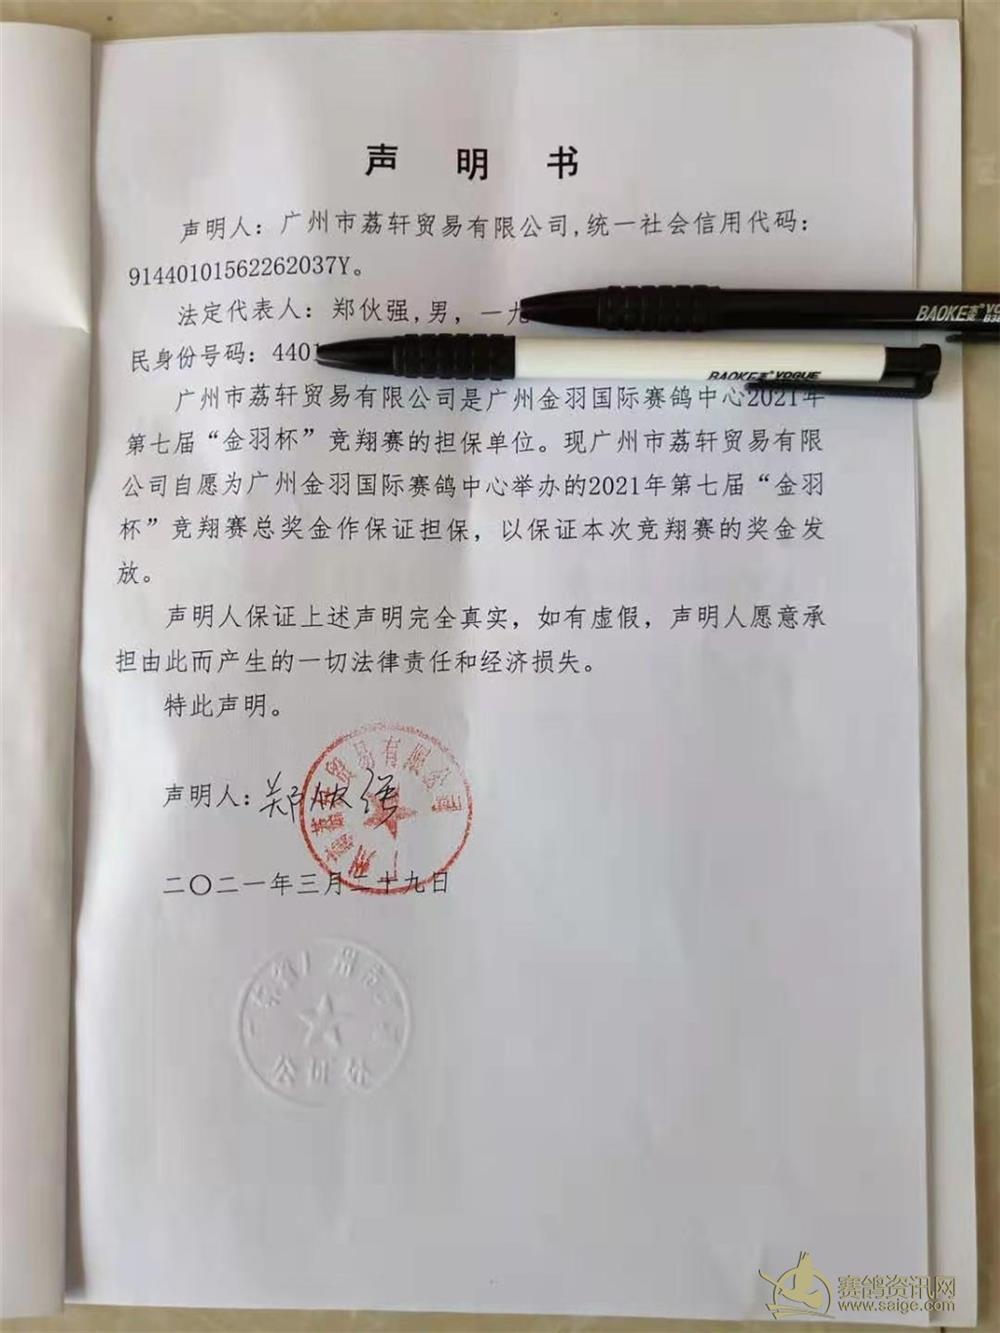 声 明 书
声明人：广州市荔轩贸易有限公司,统一社会信用代码：
91440101562262037Y。
法定代表人：郑伙强,男，一九
BAOKE
民身份号码：4401
BAOKE VOGUE
广州市荔轩贸易有限公司是广州金羽国际赛鸽中心2021年
第七届“金羽杯”竞翔赛的担保单位。现广州市荔轩贸易有限
公司自愿为广州金羽国际赛鸽中心举办的2021年第七届“金羽
杯”竞翔赛总奖金作保证担保，以保证本次竞翔赛的奖金发
放。
声明人保证上述声明完全真实，如有虚假，声明人愿意承
担由此而产生的一切法律责任和经济损失。
特此声明。
声明人：郑伙强
广州市荔轩贸易有限公司
二〇二一年三月二十九日
公证处
赛鸽资讯网
www.saige.com